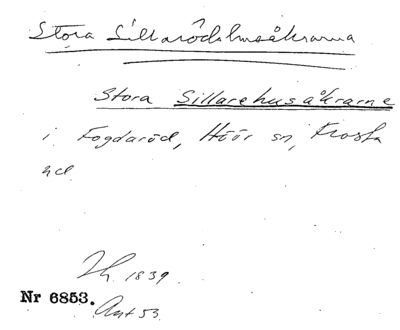 Stora Sillarödshusåkrarna
Stora Sillarehusåkrarne
i Fogdaröd, Höör sn, Frosta
hd
Lh. 1839.
Nr 6853.
Ant 53